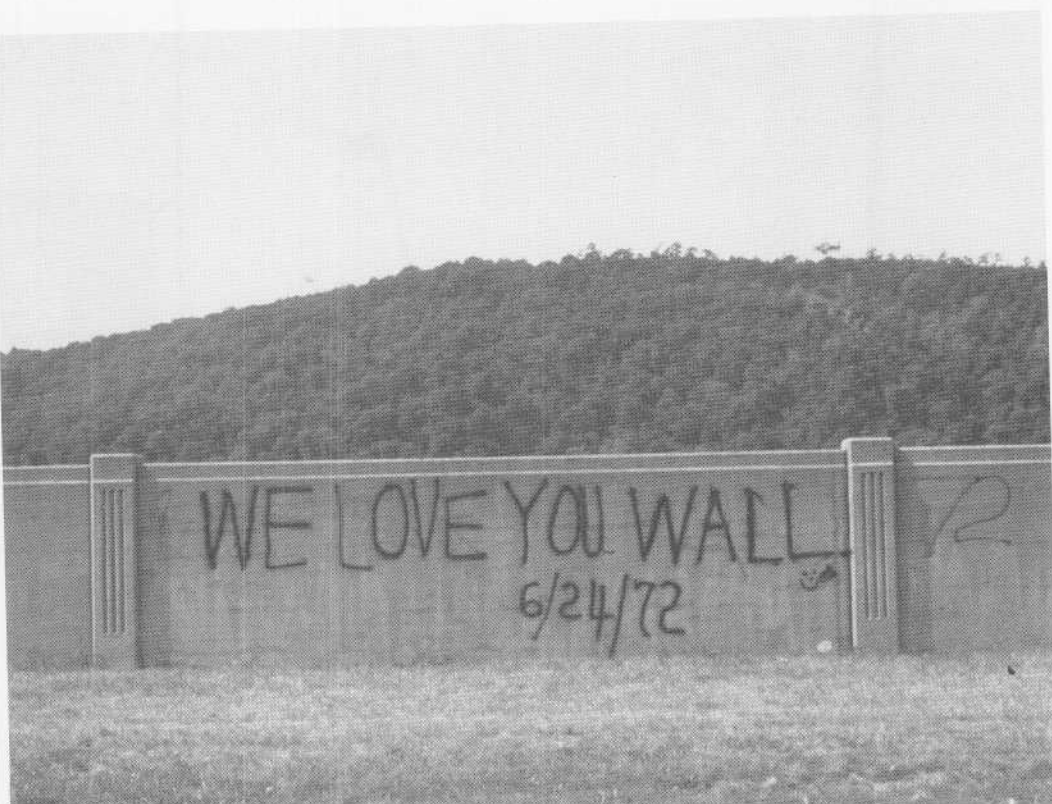 WE LOVE YOU WALL.
6/24/72
72